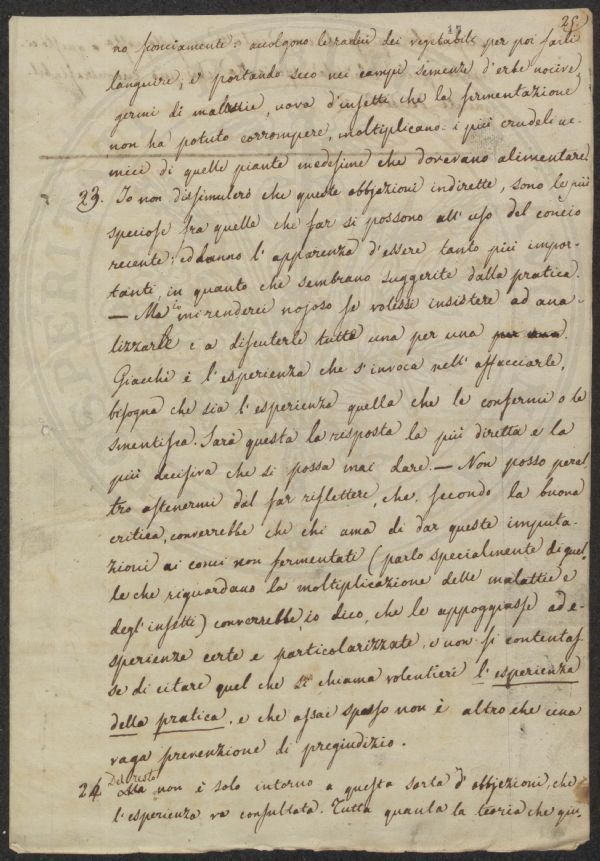 25.
no sconciamente: avvolgono le radici dei vegetabili per poi farli
languire; e portando seco nei campi semenze d'erbe nocive
germi di malattie, uova d'insetti che la fermentazione
non ha potuto corrompere, moltiplicano i più crudeli ne-
mici di quelle piante medesime che dovevano alimentare.
23. Io non dissimulerò che queste obbjezioni indirette, sono le più
speciose fra quelle che far si possono all'uso del concio
recente; ed hanno l'apparenza d'essere tanto più impor-
tanti, in quanto che sembrano suggerite dalla pratica.
— Ma io mi renderei nojoso se volessi insistere ad ana-
lizzarle e a discuterle tutte una per una per una.
Giacchè è l'esperienza che s'invoca nell'affacciarle,
bisogna che sia l'esperienza quella che le confermi o le
smentisca. Sarà questa la risposta la più diretta e la
più decisiva che si possa mai dare. — Non posso peral-
tro astenermi dal far riflettere, che, secondo la buona
critica, converrebbe che chi ama di dar queste imputa-
zioni ai conci non fermentati (parlo specialmente di quel-
le che riguardano la moltiplicazione delle malattie e
degl'insetti) converrebbe, io dico, che le appoggiasse ad e-
sperienze certe e particolarizzate, e non si contentas-
se di citare quel che si chiama volentieri l'esperienza
della pratica, e che assai spesso non è altro che una
vaga prevenzione di pregiudizio.
24 Del resto non è solo intorno a questa sorta d'obbjezioni, che
l'esperienza va consultata. Tutta quanta la teoria che giu-